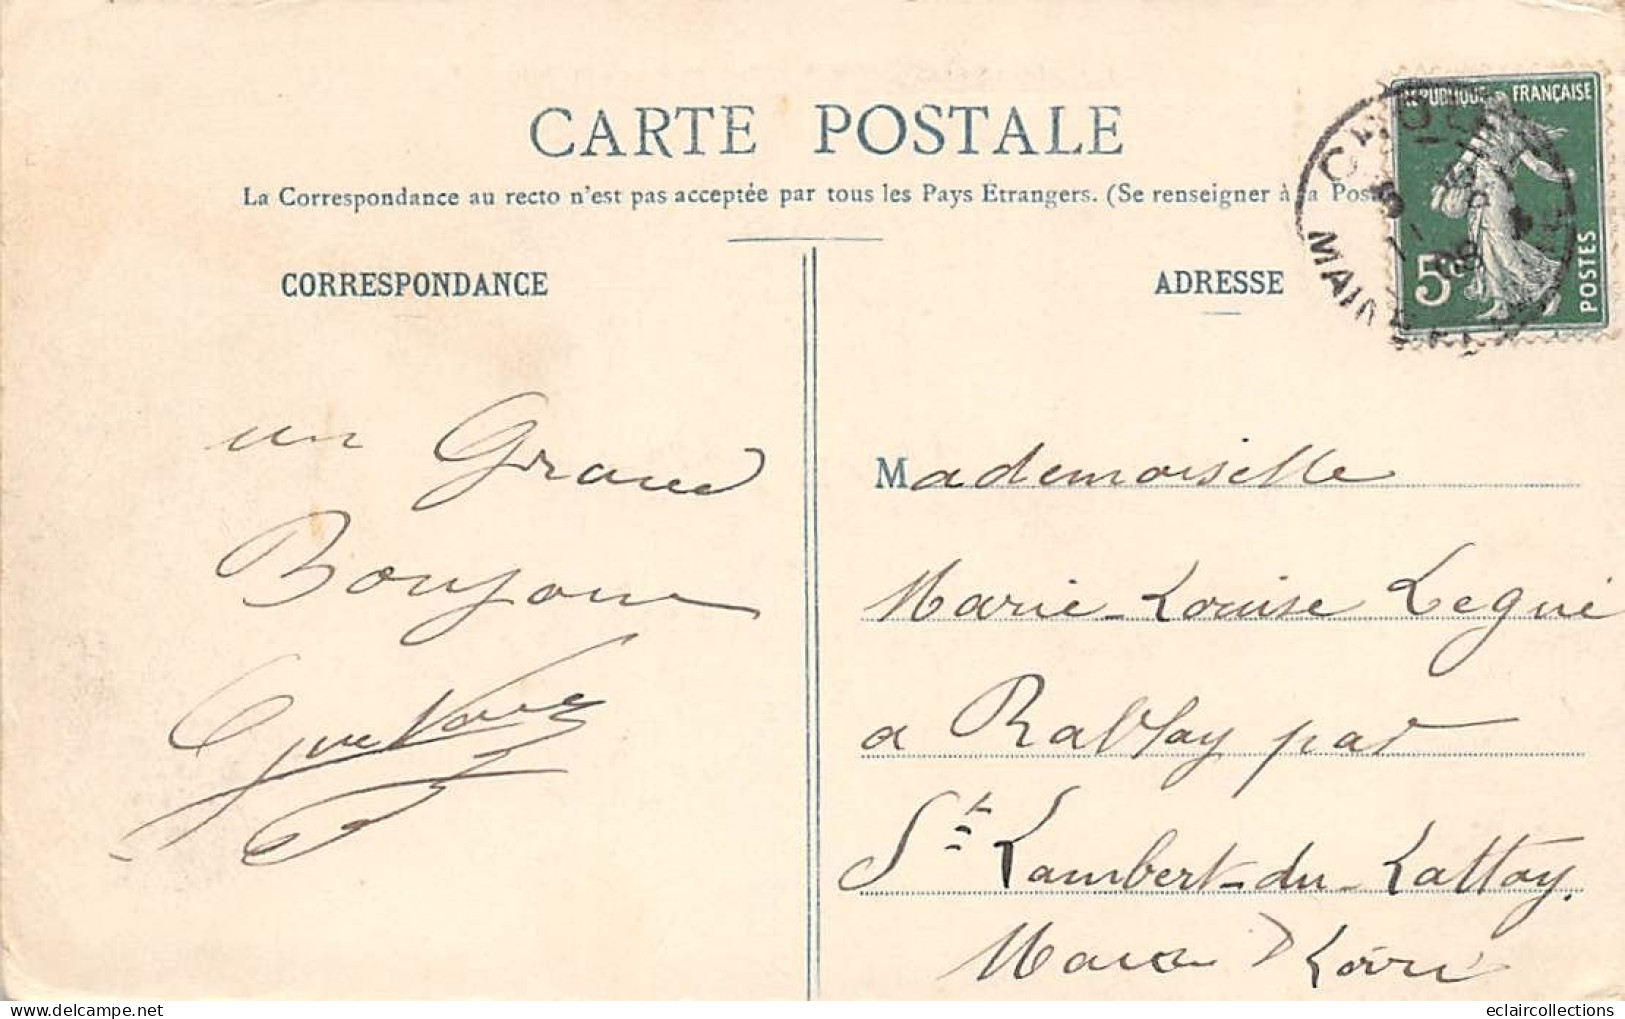 CARTE POSTALE
La Correspondance au recto n'est pas acceptée par tous les Pays Étrangers. (Se renseigner à la Post
CORRESPONDANCE
ADRESSE
REPUBLIQUE FRANÇAISE
5c
POSTES
CHOLET
MAINE ET
un Grand
Bonjour
Mademoiselle
Marie-Louise Legué
a Rablay par
St Lambert-du-Lattay.
Maine & Loire
eclaircollections